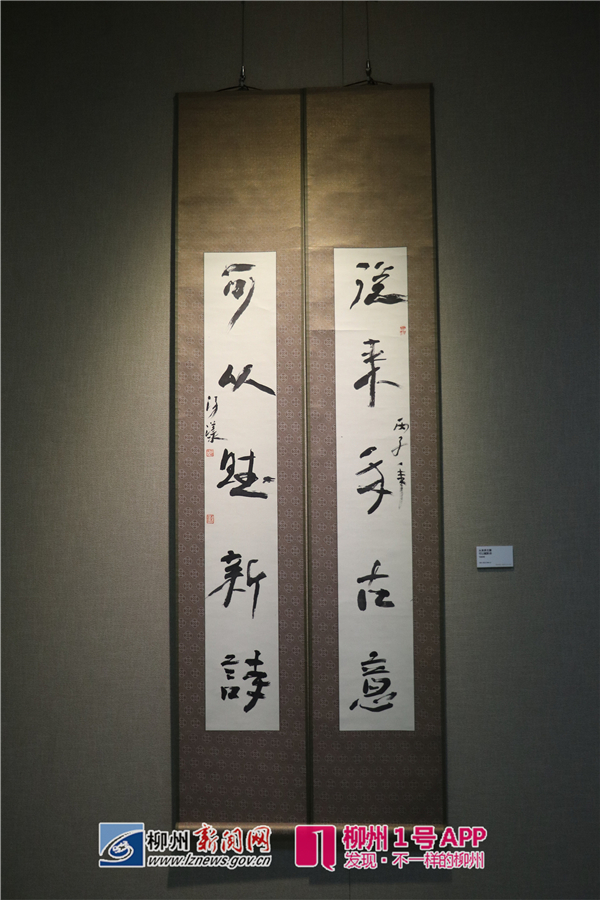 從来多古意
丙子
可以賦新詩
柳州新闻网
www.lznews.gov.cn
柳州1号APP
发现·不一样的柳州